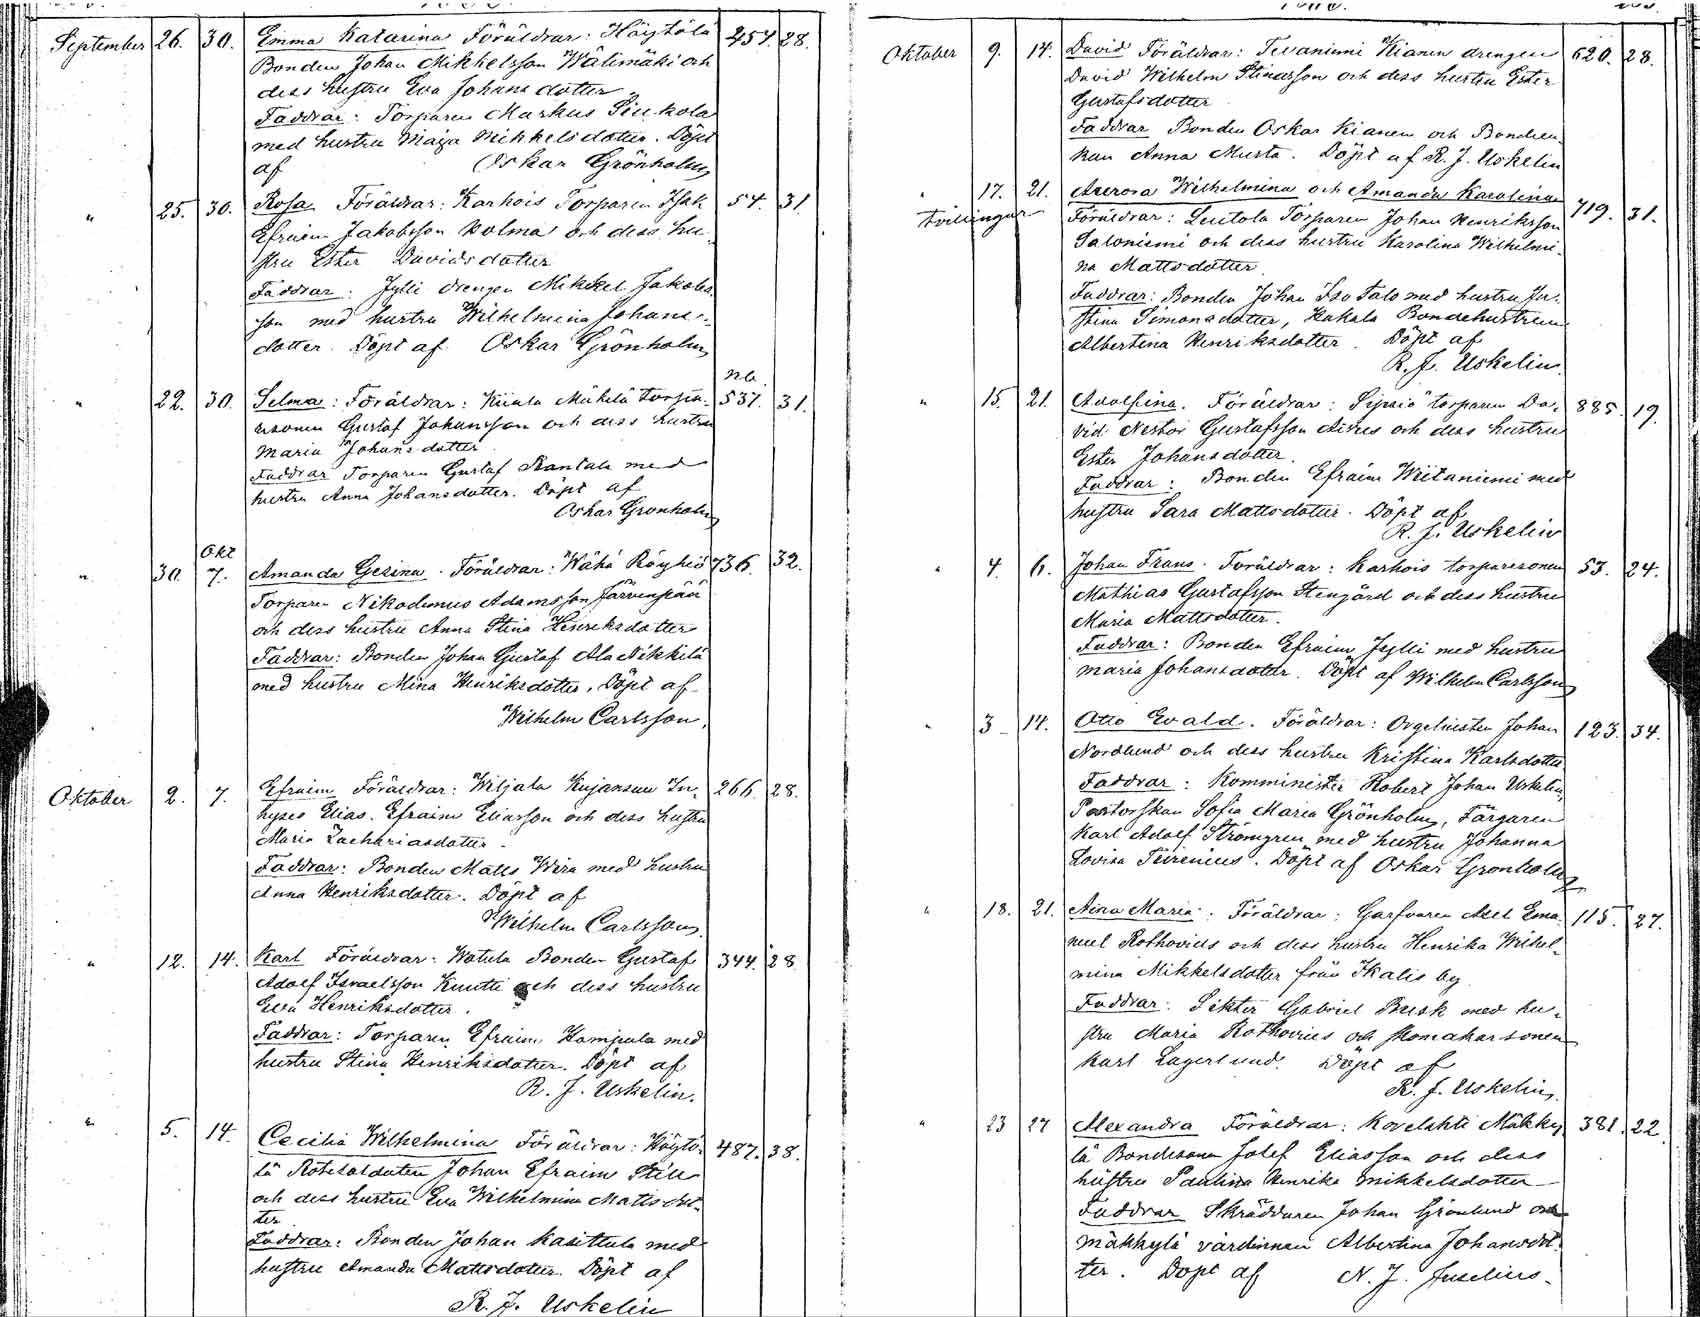 September 26. 30. Emma Katarina Föräldrar: Höytölä 454. 28.
Bonden Johan Mikkelsson Wälimäki och
dess hustru Eva Johansdotter
Faddrar: Torparen Markus Siukola
med hustru Maija Mikkelsdotter. Döpt
af Oskar Grönholm
" 25. 30. Rosa Föräldrar: Karhois Torparen Isak 54. 31
Efraim Jakobsson Holma och dess hu-
stru Ester Davidsdotter
Faddrar: Jylli drengen Mikkel Jakobs-
son med hustru Wilhelmina Johans-
dotter. Döpt af Oskar Grönholm
nb.
" 22. 30. Selma: Föräldrar: Kiiala Mäkelä torpa- 537. 31.
resonen Gustaf Johansson och dess hustru
Maria Johansdotter
Faddrar Torparen Gustaf Rantala med
hustru Anna Johansdotter. Döpt af
Oskar Grönholm
Okt
" 30. 7. Amanda Gesina. Föräldrar: Wähä Röyhiö 736. 32.
Torparen Nikodemus Adamsson Järvenpää
och dess hustru Anna Stina Henriksdotter
Faddrar: Bonden Johan Gustaf Ala Nikkilä
med hustru Mina Henriksdotter. Döpt af
Wilhelm Carlsson.
Oktober 2. 7. Efraim Föräldrar: Wiljala Kujansuu In- 266. 28.
hyses Elias Efraim Eliasson och dess hustru
Maria Zachariasdotter.
Faddrar: Bonden Matts Wira med hustru
Anna Henriksdotter. Döpt af
Wilhelm Carlsson.
" 12. 14. Karl Föräldrar: Watula Bonden Gustaf 344. 28
Adolf Israelsson Knutti och dess hustru
Eva Henriksdotter.
Faddrar: Torparen Efraim Kampula med
hustru Stina Henriksdotter. Döpt af
R. J. Uskelin.
" 5. 14. Cecilia Wilhelmina Föräldrar: Höytö- 487. 38.
lä Rotesoldaten Johan Efraim Still
och dess hustru Eva Wilhelmina Mattsdot-
ter
Faddrar: Bonden Johan Kasittula med
hustru Amanda Mattsdotter. Döpt af
R. J. Uskelin
Oktober 9. 14. David Föräldrar: Tevaniemi Kianen drengen 620. 28.
David Wilhelm Stinasson och dess hustru Ester
Gustafsdotter
Faddrar Bonden Oskar Kianen och Bondens-
kan Anna Musta. Döpt af R. J. Uskelin
" 17. 21. Aurora Wilhelmina och Amanda Karolina 719. 31.
Tvillingar Föräldrar: Leutola Torparen Johan Henriksson
Saloniemi och dess hustru Karolina Wilhelmi-
na Mattsdotter.
Faddrar: Bonden Johan Iso Talo med hustru Ju-
stina Simonsdotter, Hakala Bondehustrun
Albertina Henriksdotter. Döpt af
R. J. Uskelin.
" 15. 21. Adolfina. Föräldrar: Sipsiö torparen Da- 885. 19.
vid Nestor Gustafsson och dess hustru
Ester Johansdotter.
Faddrar: Bonden Efraim Wiitaniemi med
hustru Sara Mattsdotter. Döpt af
R. J. Uskelin
" 4. 6. Johan Frans. Föräldrar: Karhois torparesonen 53. 24.
Mathias Gustafsson Stengård och dess hustru
Maria Mattsdotter.
Faddrar: Bonden Efraim Jylli med hustru
Maria Johansdotter. Döpt af Wilhelm Carlsson
" 3 14. Otto Evald. Föräldrar: Orgelnisten Johan 123. 34.
Nordlund och dess hustru Kristina Karlsdotter
Faddrar: Komminister Robert Johan Uskelin,
Pastorskan Sofia Maria Grönholm, Färgaren
Karl Adolf Strömgren med hustru Johanna
Lovisa Teirenius. Döpt af Oskar Grönholm
" 18. 21. Aina Maria. Föräldrar: Garfvaren Axel Ema- 115. 27.
nuel Rothovius och dess hustru Henrika Wilhel-
mina Mikkelsdotter från Ikalis by
Faddrar: Gabriel Busk med hu-
stru Maria Rothovius och skomakarsonen
Karl Lagerlund. Döpt af
R. J. Uskelin.
" 23 27 Alexandra Föräldrar: Kovelahti Mäkky- 381. 22
lä Bondesonen Josef Eliasson och dess
hustru Paulina Henrika Mikkelsdotter
Faddrar Skräddaren Johan Grönlund och
Mäkkylä värdinnan Albertina Johansdot-
ter. Döpt af N. J. Juselius.